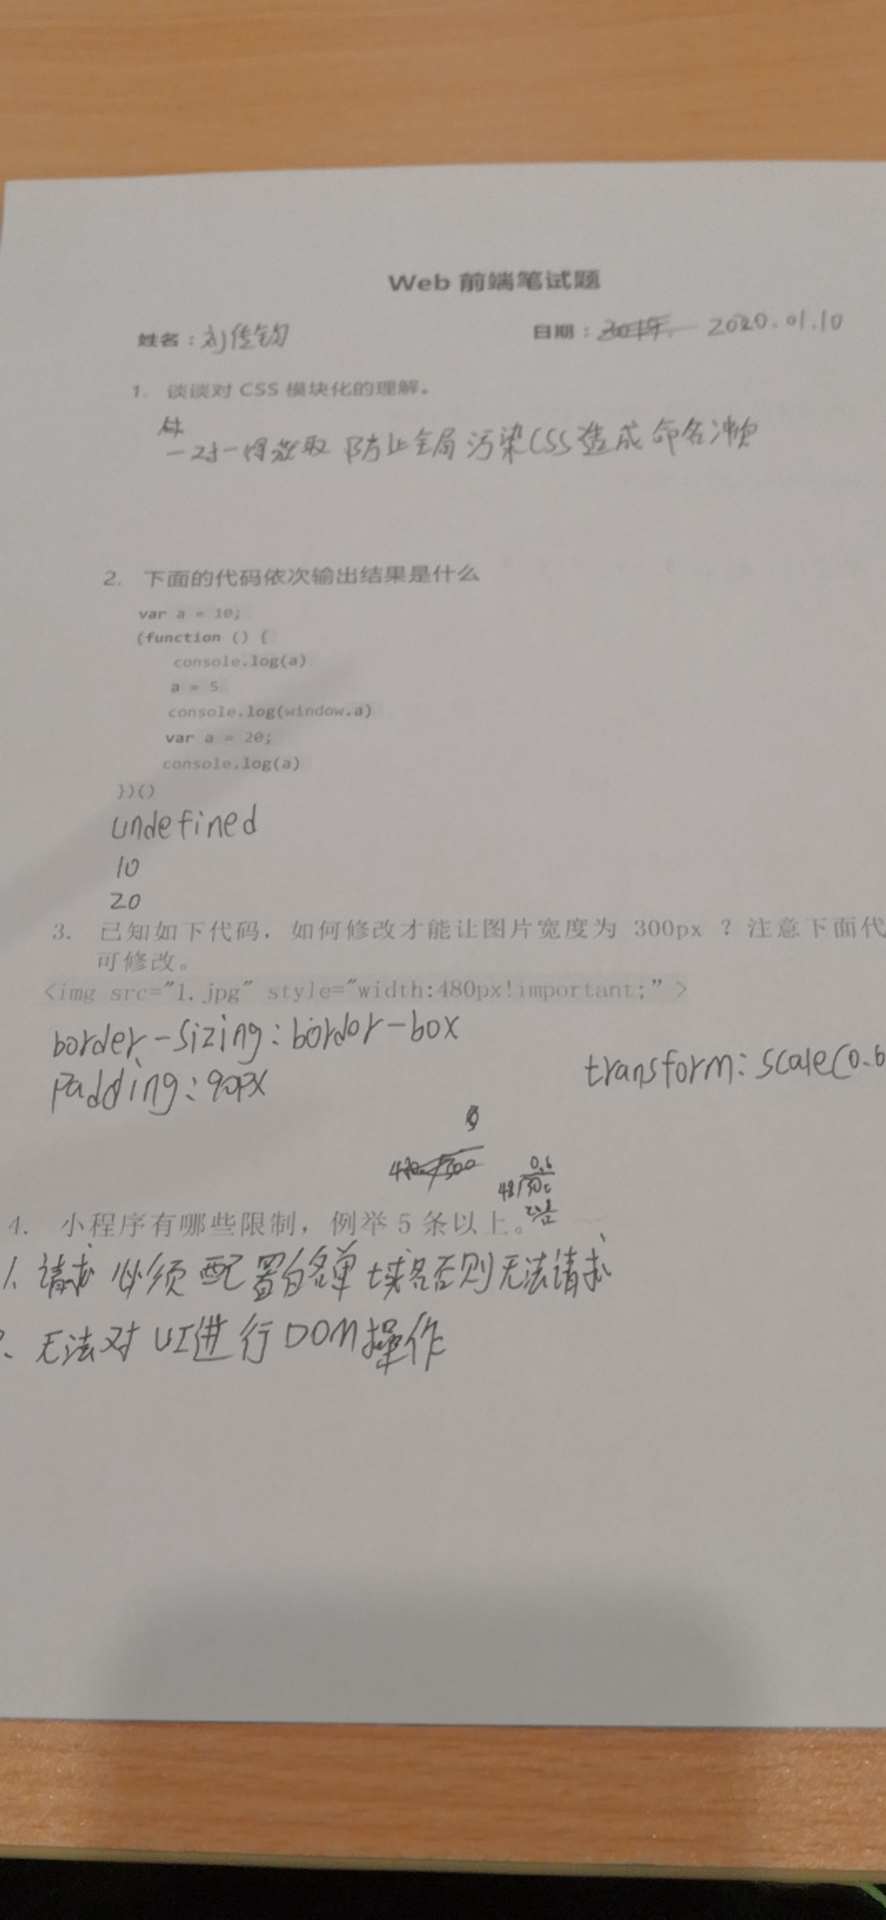 Web 前端笔试题
姓名：刘传钧 日期：2019. 2020.01.10
1. 谈谈对 CSS 模块化的理解。
一对一得获取 防止全局污染CSS造成命名冲突
2. 下面的代码依次输出结果是什么
var a = 10;
(function () {
console.log(a)
a = 5
console.log(window.a)
var a = 20;
console.log(a)
})()
undefined
10
20
3. 已知如下代码，如何修改才能让图片宽度为 300px ？注意下面代
可修改。
<img src="1.jpg" style="width:480px!important;” >
border-sizing:bordor-box
padding:90px transform:scale(0.6
0.6
48
4. 小程序有哪些限制，例举 5 条以上。
1、请求必须配置白名单域名否则无法请求
、无法对UI进行DOM操作